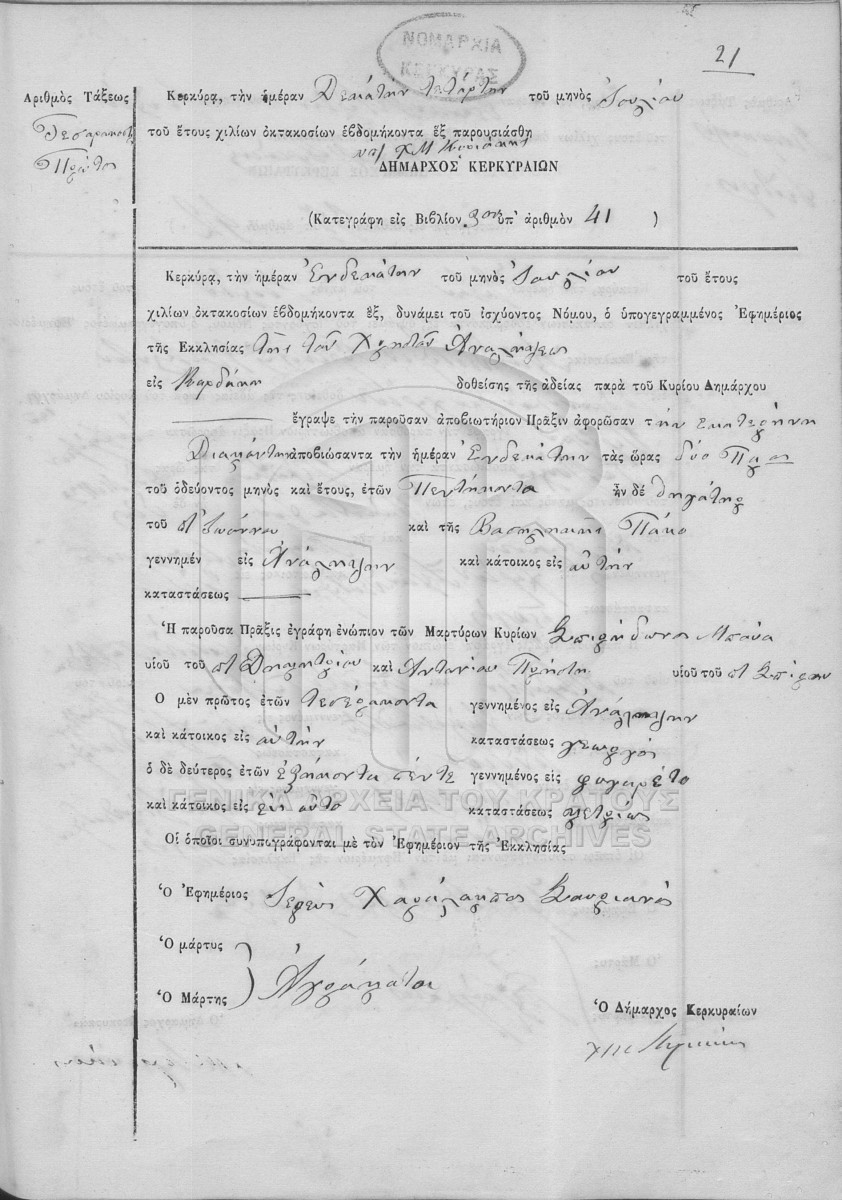 21
ΝΟΜΑΡΧΙΑ
ΚΕΡΚΥΡΑΣ
Ἀριθμὸς Τάξεως
Τεσαρακοστὸς
Πρῶτος
Κερκύρᾳ, τὴν ἡμέραν Δεκάτην τετάρτην τοῦ μηνὸς Ἰουλίου
τοῦ ἔτους χιλίων ὀκτακοσίων ἑβδομήκοντα ἓξ παρουσιάσθη
ΔΗΜΑΡΧΟΣ ΚΕΡΚΥΡΑΙΩΝ
(Κατεγράφη εἰς Βιβλίον ὑπ' ἀριθμὸν 41 )
Κερκύρᾳ, τὴν ἡμέραν Ἑνδεκάτην τοῦ μηνὸς Ἰουλίου τοῦ ἔτους
χιλίων ὀκτακοσίων ἑβδομήκοντα ἕξ, δυνάμει τοῦ ἰσχύοντος Νόμου, ὁ ὑπογεγραμμένος Ἐφημέριος
τῆς Ἐκκλησίας τῆς τοῦ Χρηστοῦ Ἀναλήψεως
εἰς Βαρδάκη δοθείσης τῆς ἀδείας παρὰ τοῦ Κυρίου Δημάρχου
ἔγραψε τὴν παροῦσαν ἀποβιωτήριον Πρᾶξιν ἀφορῶσαν τὴν εκατερήνη
ἀποβιώσαντα τὴν ἡμέραν Ἑνδεκάτην τὰς ὥρας δύο
τοῦ ὁδεύοντος μηνὸς καὶ ἔτους, ἐτῶν Πεντήκοντα ἦν δὲ θηγάτηρ
τοῦ Ἰωάννου καὶ τῆς Βασηληκῆς Πάκο
γεννημέν εἰς Ἀνάληψην καὶ κάτοικος εἰς αὐτήν
καταστάσεως
Ἡ παροῦσα Πρᾶξις ἐγράφη ἐνώπιον τῶν Μαρτύρων Κυρίων Σπιρήδωνος Μπάνα
υἱοῦ τοῦ Δημητρίου καὶ Ἀντωνίου υἱοῦ τοῦ Σπίρου
Ὁ μὲν πρῶτος ἐτῶν τεσέρακοντα γεννημένος εἰς Ἀνάληψην
καὶ κάτοικος εἰς αὐτήν καταστάσεως γεωργός
ὁ δὲ δεύτερος ἐτῶν ἑξήκοντα πέντε γεννημένος εἰς
καὶ κάτοικος εἰς εἰς αὐτό καταστάσεως
ΓΕΝΙΚΑ ΑΡΧΕΙΑ ΤΟΥ ΚΡΑΤΟΥΣ
GENERAL STATE ARCHIVES
Οἱ ὁποῖοι συνυπογράφονται μὲ τὸν Ἐφημέριον τῆς Ἐκκλησίας
Ὁ Ἐφημέριος Ἱερεύς Χαράλαμπος
Ὁ μάρτυς
Ὁ Μάρτης Ἀγράματοι
Ὁ Δήμαρχος Κερκυραίων